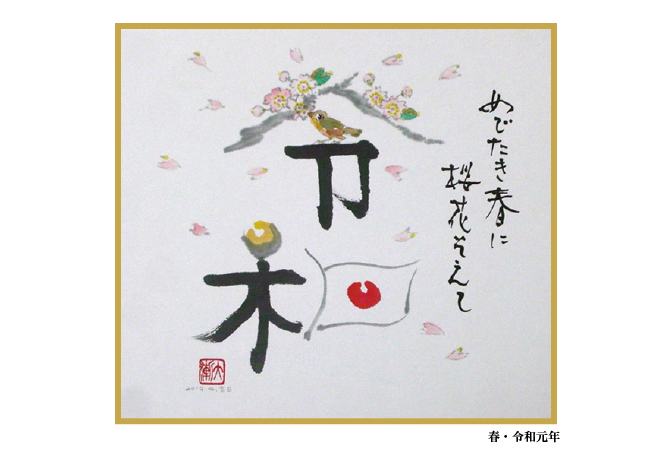 めでたき春に
桜花そえて
令和
春・令和元年